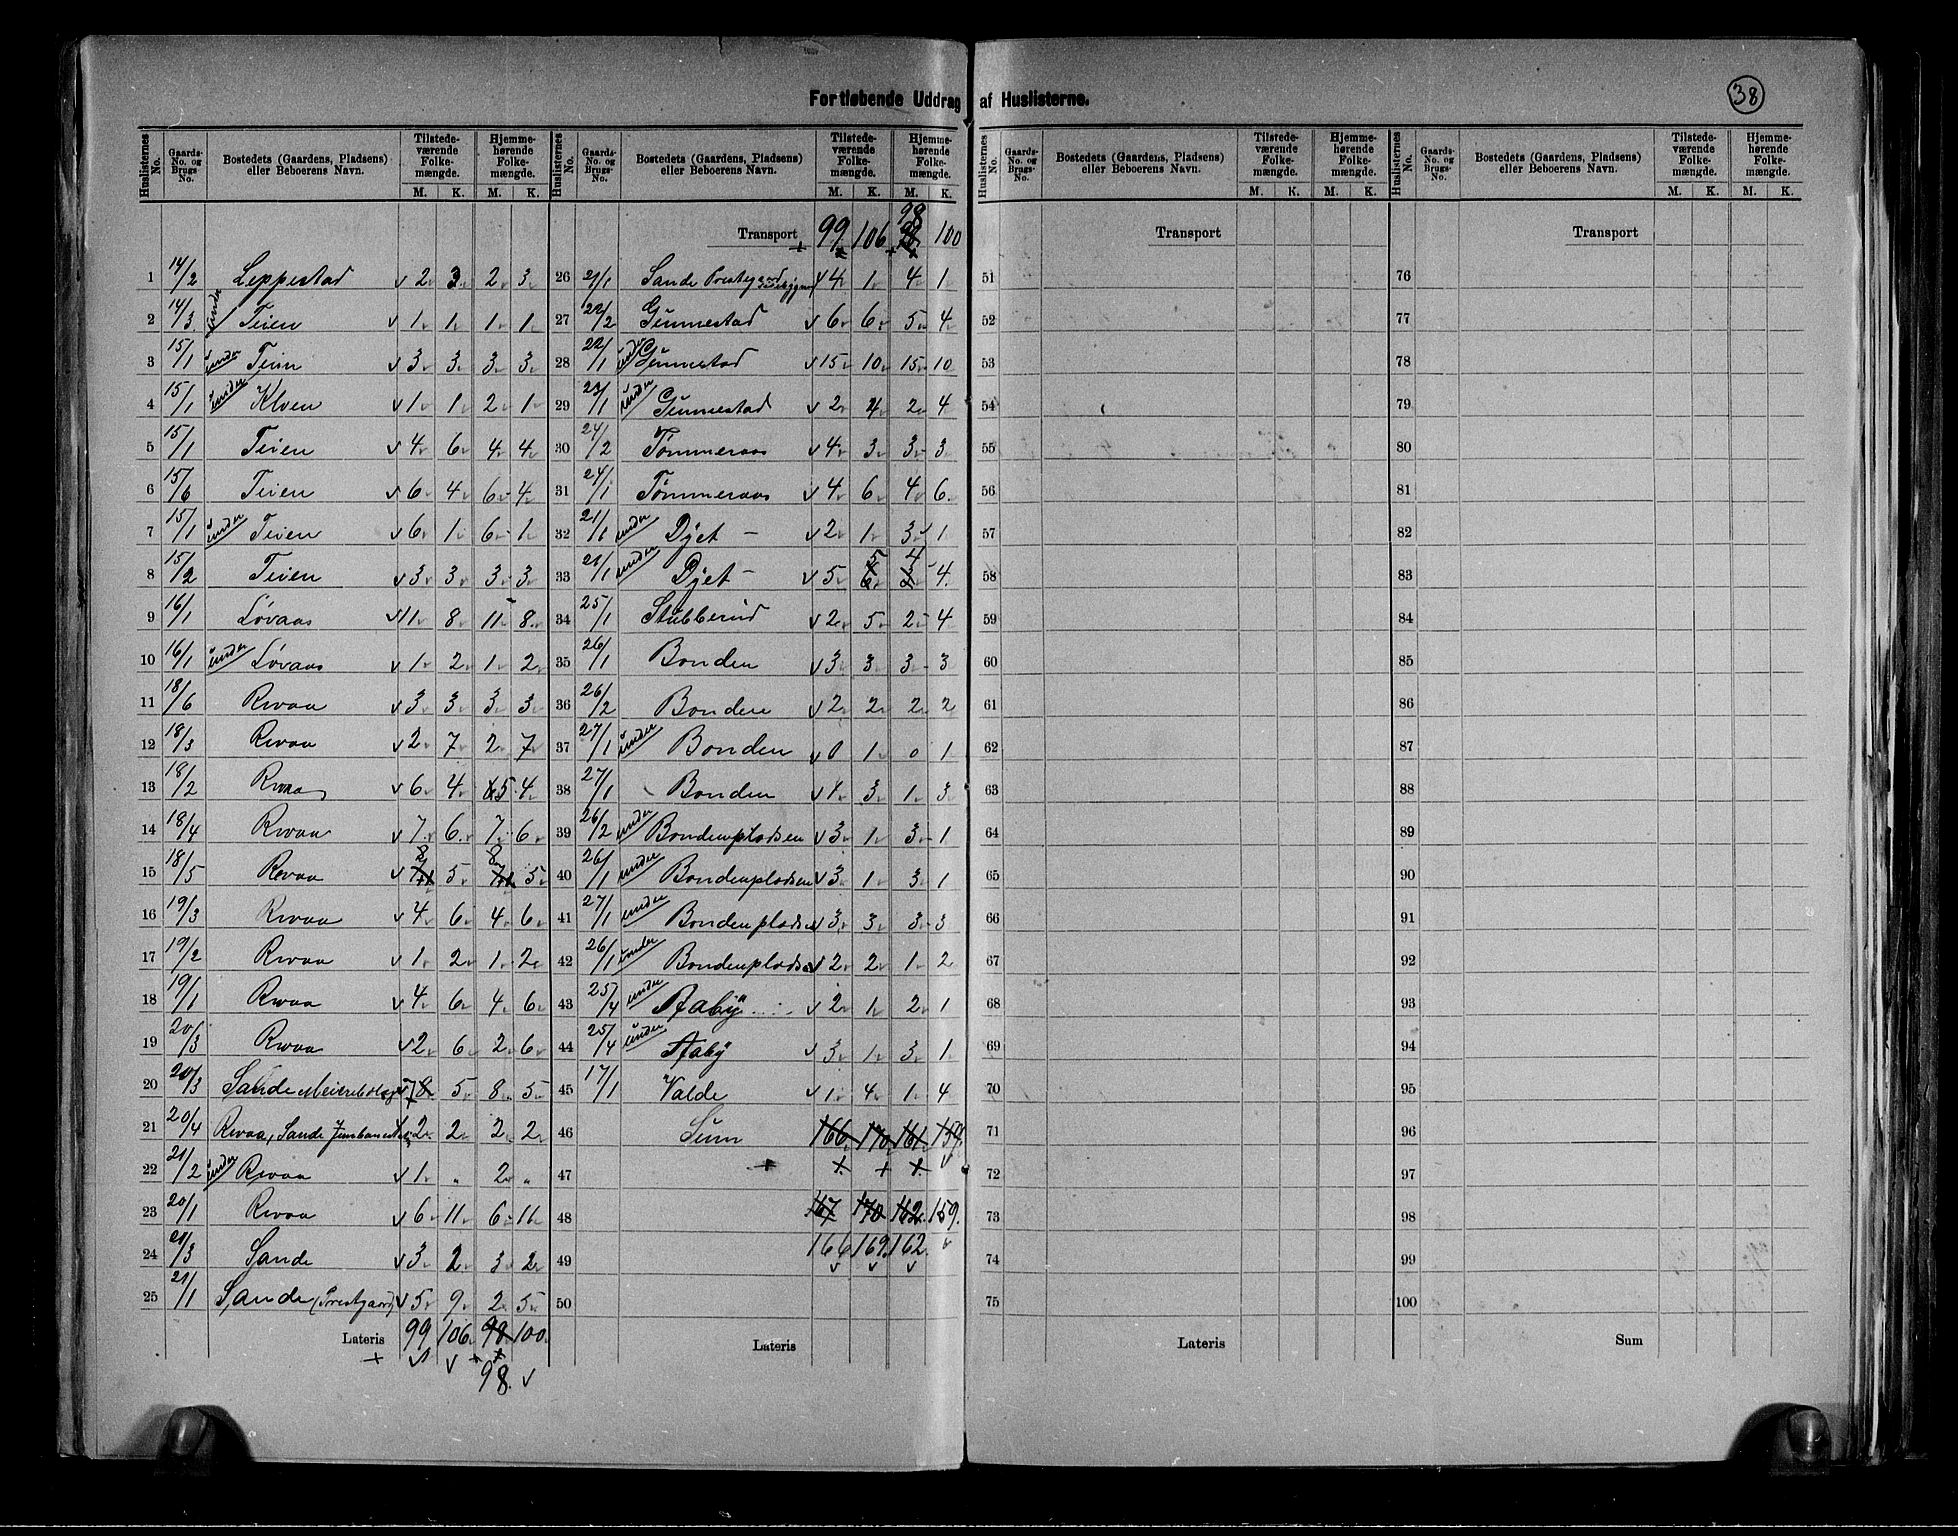 Fortløbende Uddrag af Huslisterne.
38
Huslisternes No. Gaards-No. og Brugs-No. Bostedets (Gaardens, Pladsens) eller Beboerens Navn. Tilstedeværende Folkemængde. M. K. Hjemmehørende Folkemængde. M. K.
1 14/2 Leppestad v 2 3 2 3
2 14/3 under Teien v 1 1 1 1
3 15/1 under Teien v 3 3 3 3
4 15/1 under Kloen v 1 1 2 1
5 15/1 Teien v 4 6 4 4
6 15/6 Teien v 6 4 6 4
7 15/1 under Teien v 6 1 6 1
8 15/2 Teien v 3 3 3 3
9 16/1 Løvaas v 11 8 11 8
10 16/1 under Løvaas v 1 2 1 2
11 18/6 Revaa v 3 3 3 3
12 18/3 Revaa v 2 7 2 7
13 18/2 Revaa v 6 4 5 4
14 18/4 Revaa v 7 6 7 6
15 18/5 Revaa v 8 5 8 5
16 19/3 Revaa v 4 6 4 6
17 19/2 Revaa v 1 2 1 2
18 19/1 Revaa v 4 6 4 6
19 20/3 Revaa v 2 6 2 6
20 20/3 Sande Meieribolag 7 8 5 8 5
21 20/4 Revaa, Sande 2 2 2 2
22 21/2 under Revaa v 1 " 2 "
23 20/1 Revaa v 6 11 6 11
24 21/3 Sande v 3 2 3 2
25 21/1 Sande (Prestgaard) v 5 9 2 5
Lateris 99 106 98 100
98
Huslisternes No. Gaards-No. og Brugs-No. Bostedets (Gaardens, Pladsens) eller Beboerens Navn. Tilstedeværende Folkemængde. M. K. Hjemmehørende Folkemængde. M. K.
Transport 99 106 98 100
26 21/1 Sande Prestegaard v 4 1 4 1
27 22/2 Gunnestad v 6 6 5 4
28 22/1 under Gunnestad v 15 10 15 10
29 23/1 under Gunnestad v 2 4 2 4
30 24/2 Tømmeraas v 4 3 3 3
31 24/1 Tømmeraas v 4 6 4 6
32 21/1 under Djet v 2 1 3 1
33 21/1 under Djet v 5 5 4 4
34 25/1 Stubberud v 2 5 2 4
35 26/1 Bonden v 3 3 3 3
36 26/2 Bonden v 2 2 2 2
37 27/1 under Bonden v 0 1 0 1
38 27/1 Bonden v 1 3 1 3
39 26/2 under Bondenpladsen v 3 1 3 1
40 26/1 under Bondenpladsen v 3 1 3 1
41 27/1 under Bondenpladsen v 3 3 3 3
42 26/1 under Bondenpladsen v 2 2 1 2
43 25/4 under Aaby v 2 1 2 1
44 25/4 under Aaby v 3 1 3 1
45 17/1 Valde v 1 4 1 4
46 Sum 166 170 161 159
47
48 167 170 162 159.
49 166 169 162
50
Lateris
Huslisternes No. Gaards-No. og Brugs-No. Bostedets (Gaardens, Pladsens) eller Beboerens Navn. Tilstedeværende Folkemængde. M. K. Hjemmehørende Folkemængde. M. K.
Transport
51
52
53
54
55
56
57
58
59
60
61
62
63
64
65
66
67
68
69
70
71
72
73
74
75
Lateris
Huslisternes No. Gaards-No. og Brugs-No. Bostedets (Gaardens, Pladsens) eller Beboerens Navn. Tilstedeværende Folkemængde. M. K. Hjemmehørende Folkemængde. M. K.
Transport
76
77
78
79
80
81
82
83
84
85
86
87
88
89
90
91
92
93
94
95
96
97
98
99
100
Sum